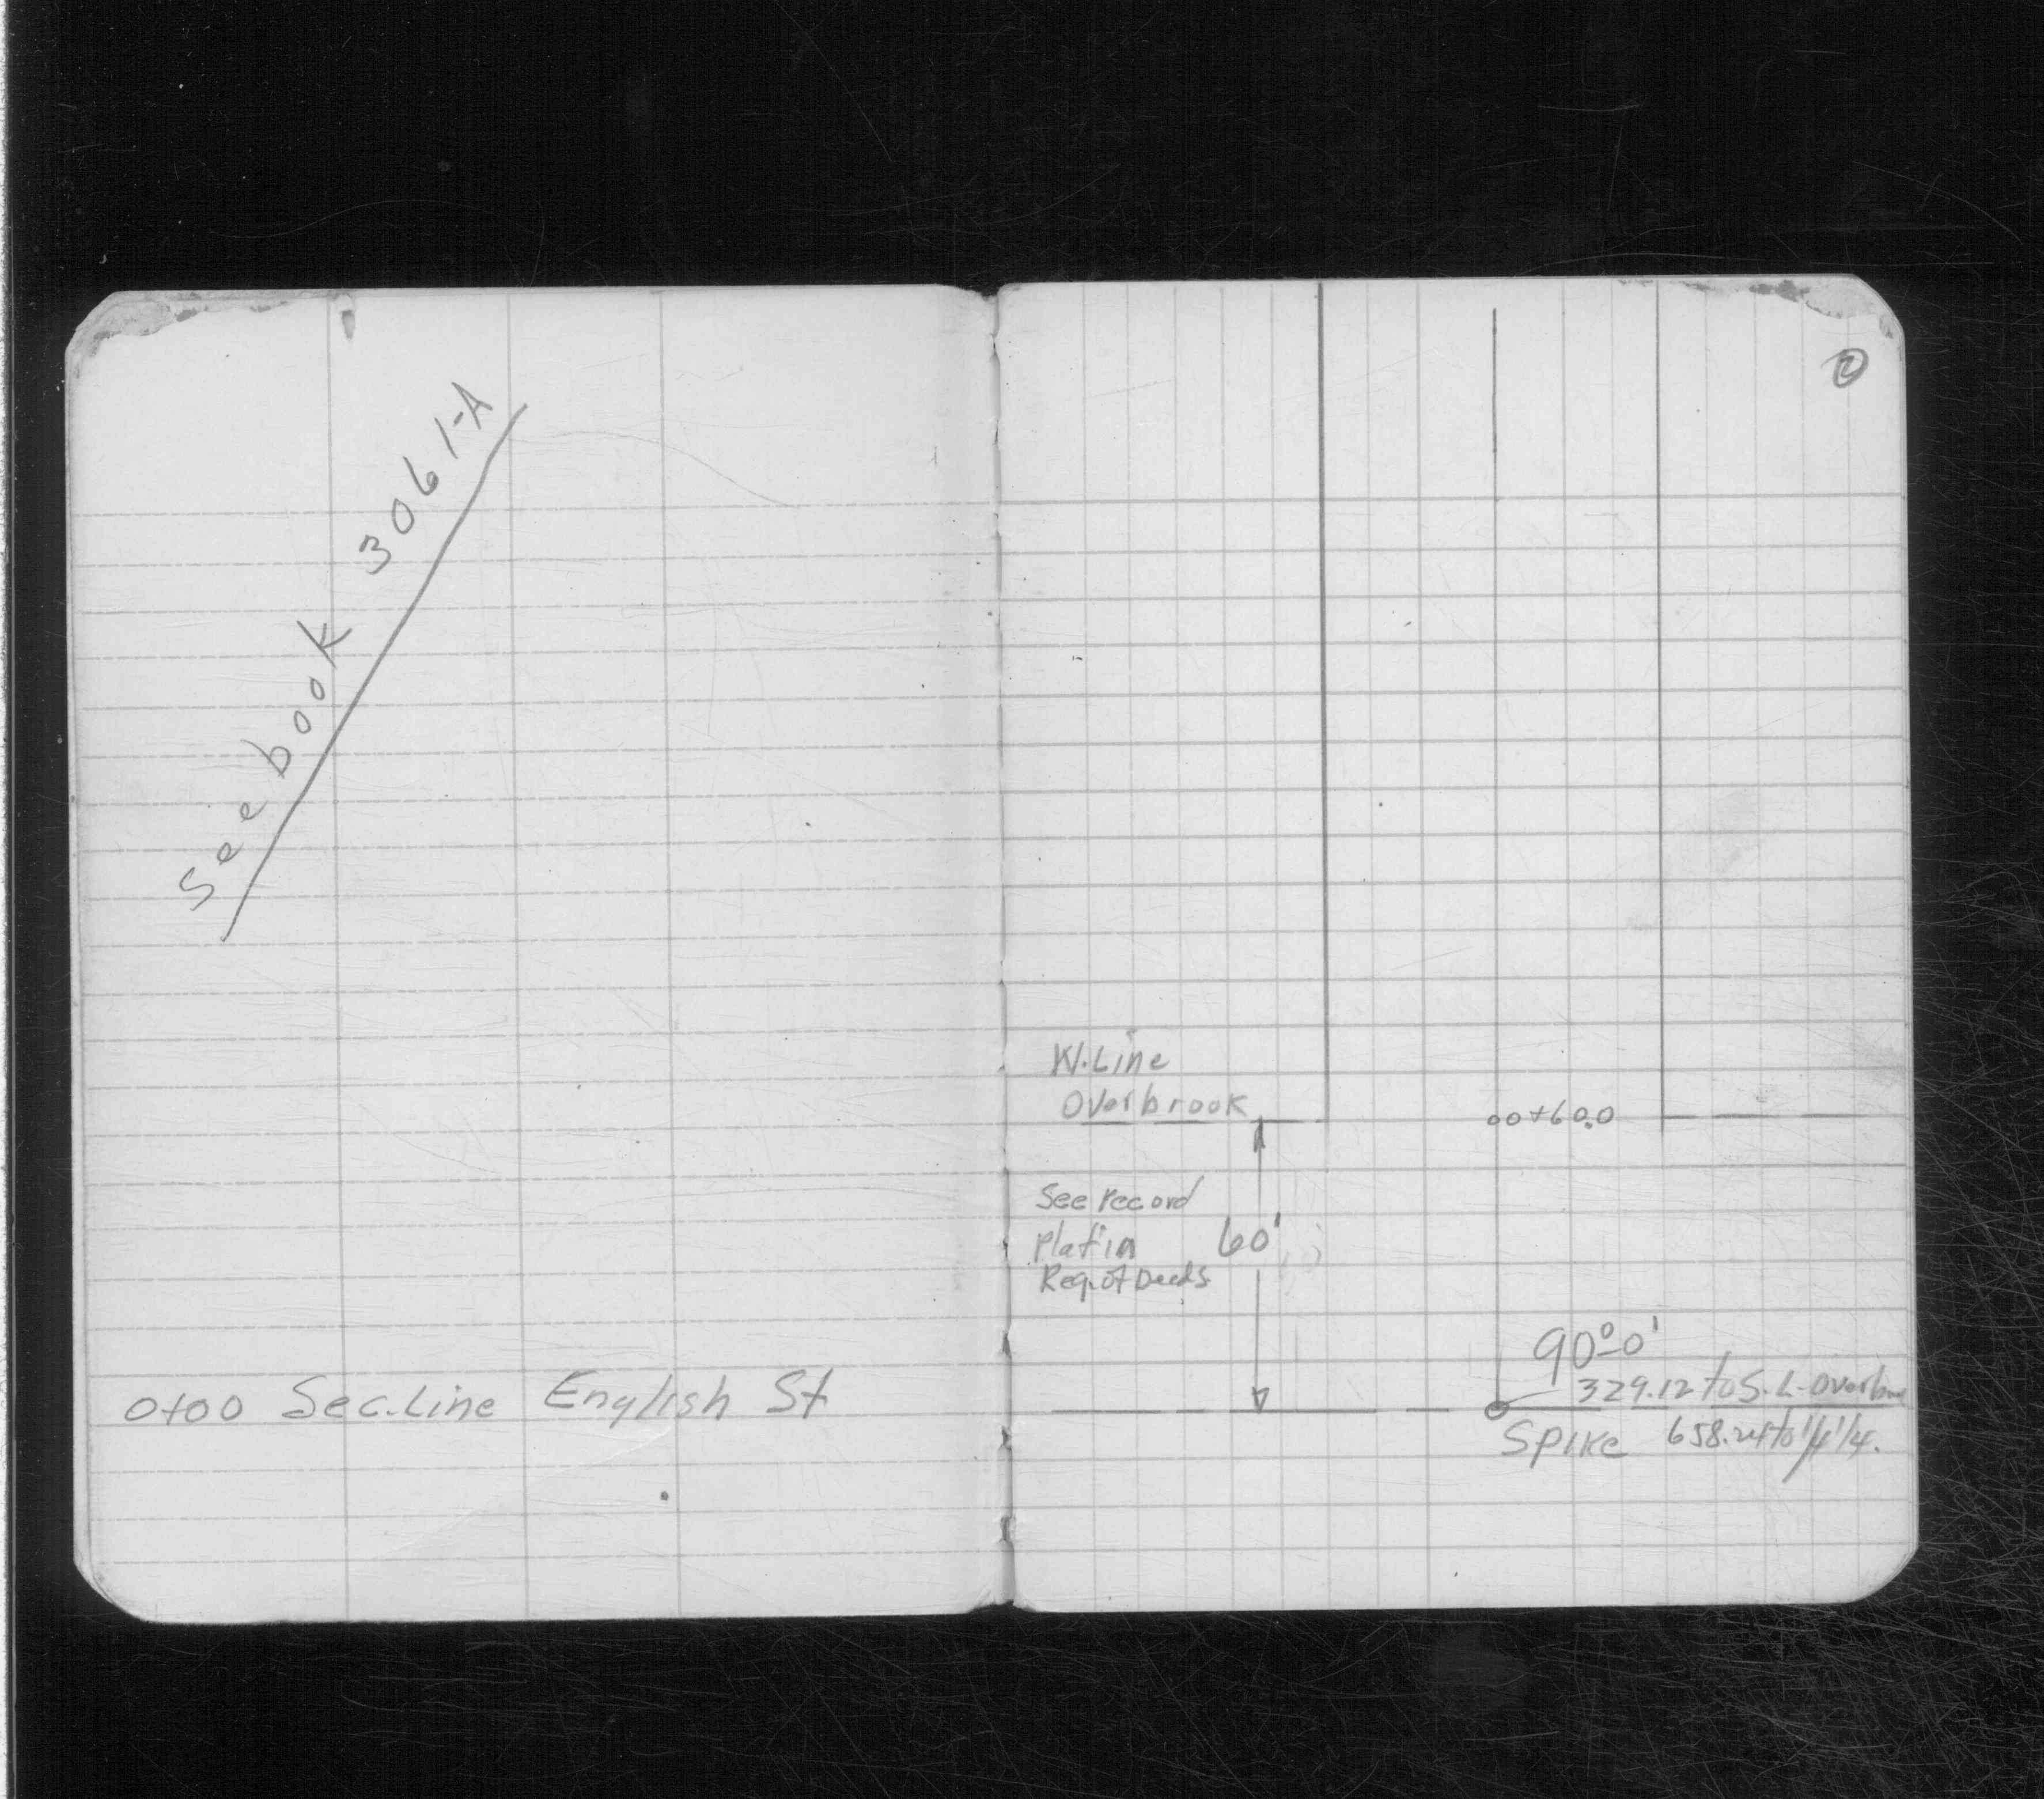 See book 3061-A
0+00 Sec.Line English St
2
W.Line
Overbrook
00+60.0
See record
Plat in
Reg. of Deeds
60'
90°-0'
329.12 to S.L. Overbrook
Spike 658.24 to 1/4 1/4.